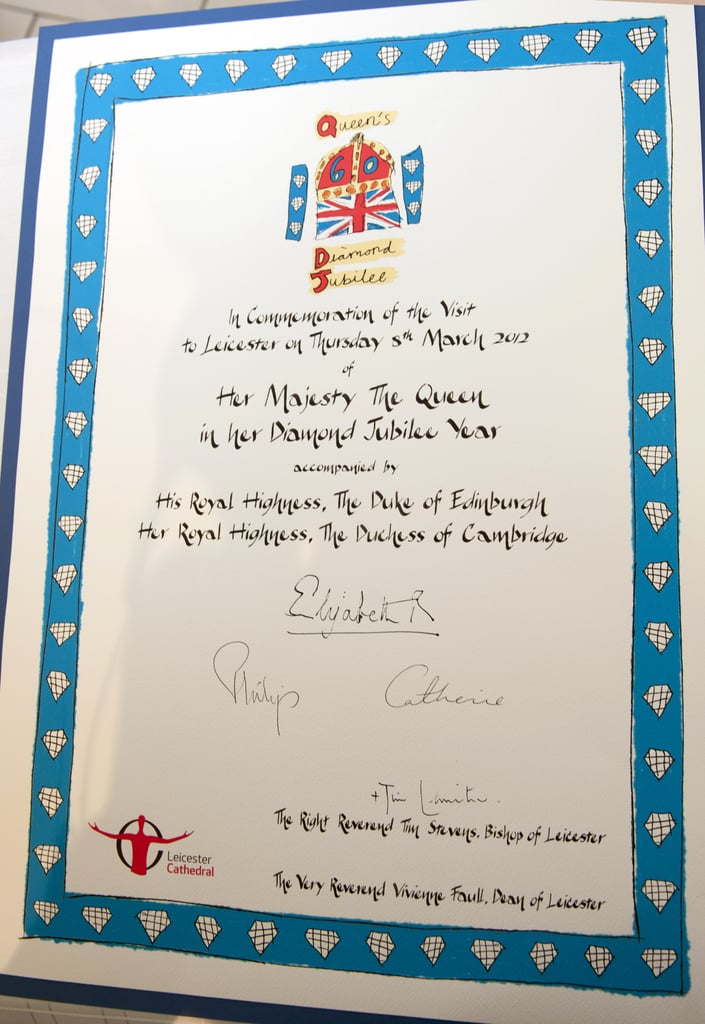 Queen's
60
Diamond
Jubilee
In Commemoration of the Visit
to Leicester on Thursday 8th March 2012
of
Her Majesty The Queen
in her Diamond Jubilee Year
accompanied by
His Royal Highness, The Duke of Edinburgh
Her Royal Highness, The Duchess of Cambridge
Elizabeth R
Philip
Catherine
+Tim
The Right Reverend Tim Stevens, Bishop of Leicester
Leicester
Cathedral
The Very Reverend Vivienne Faull, Dean of Leicester